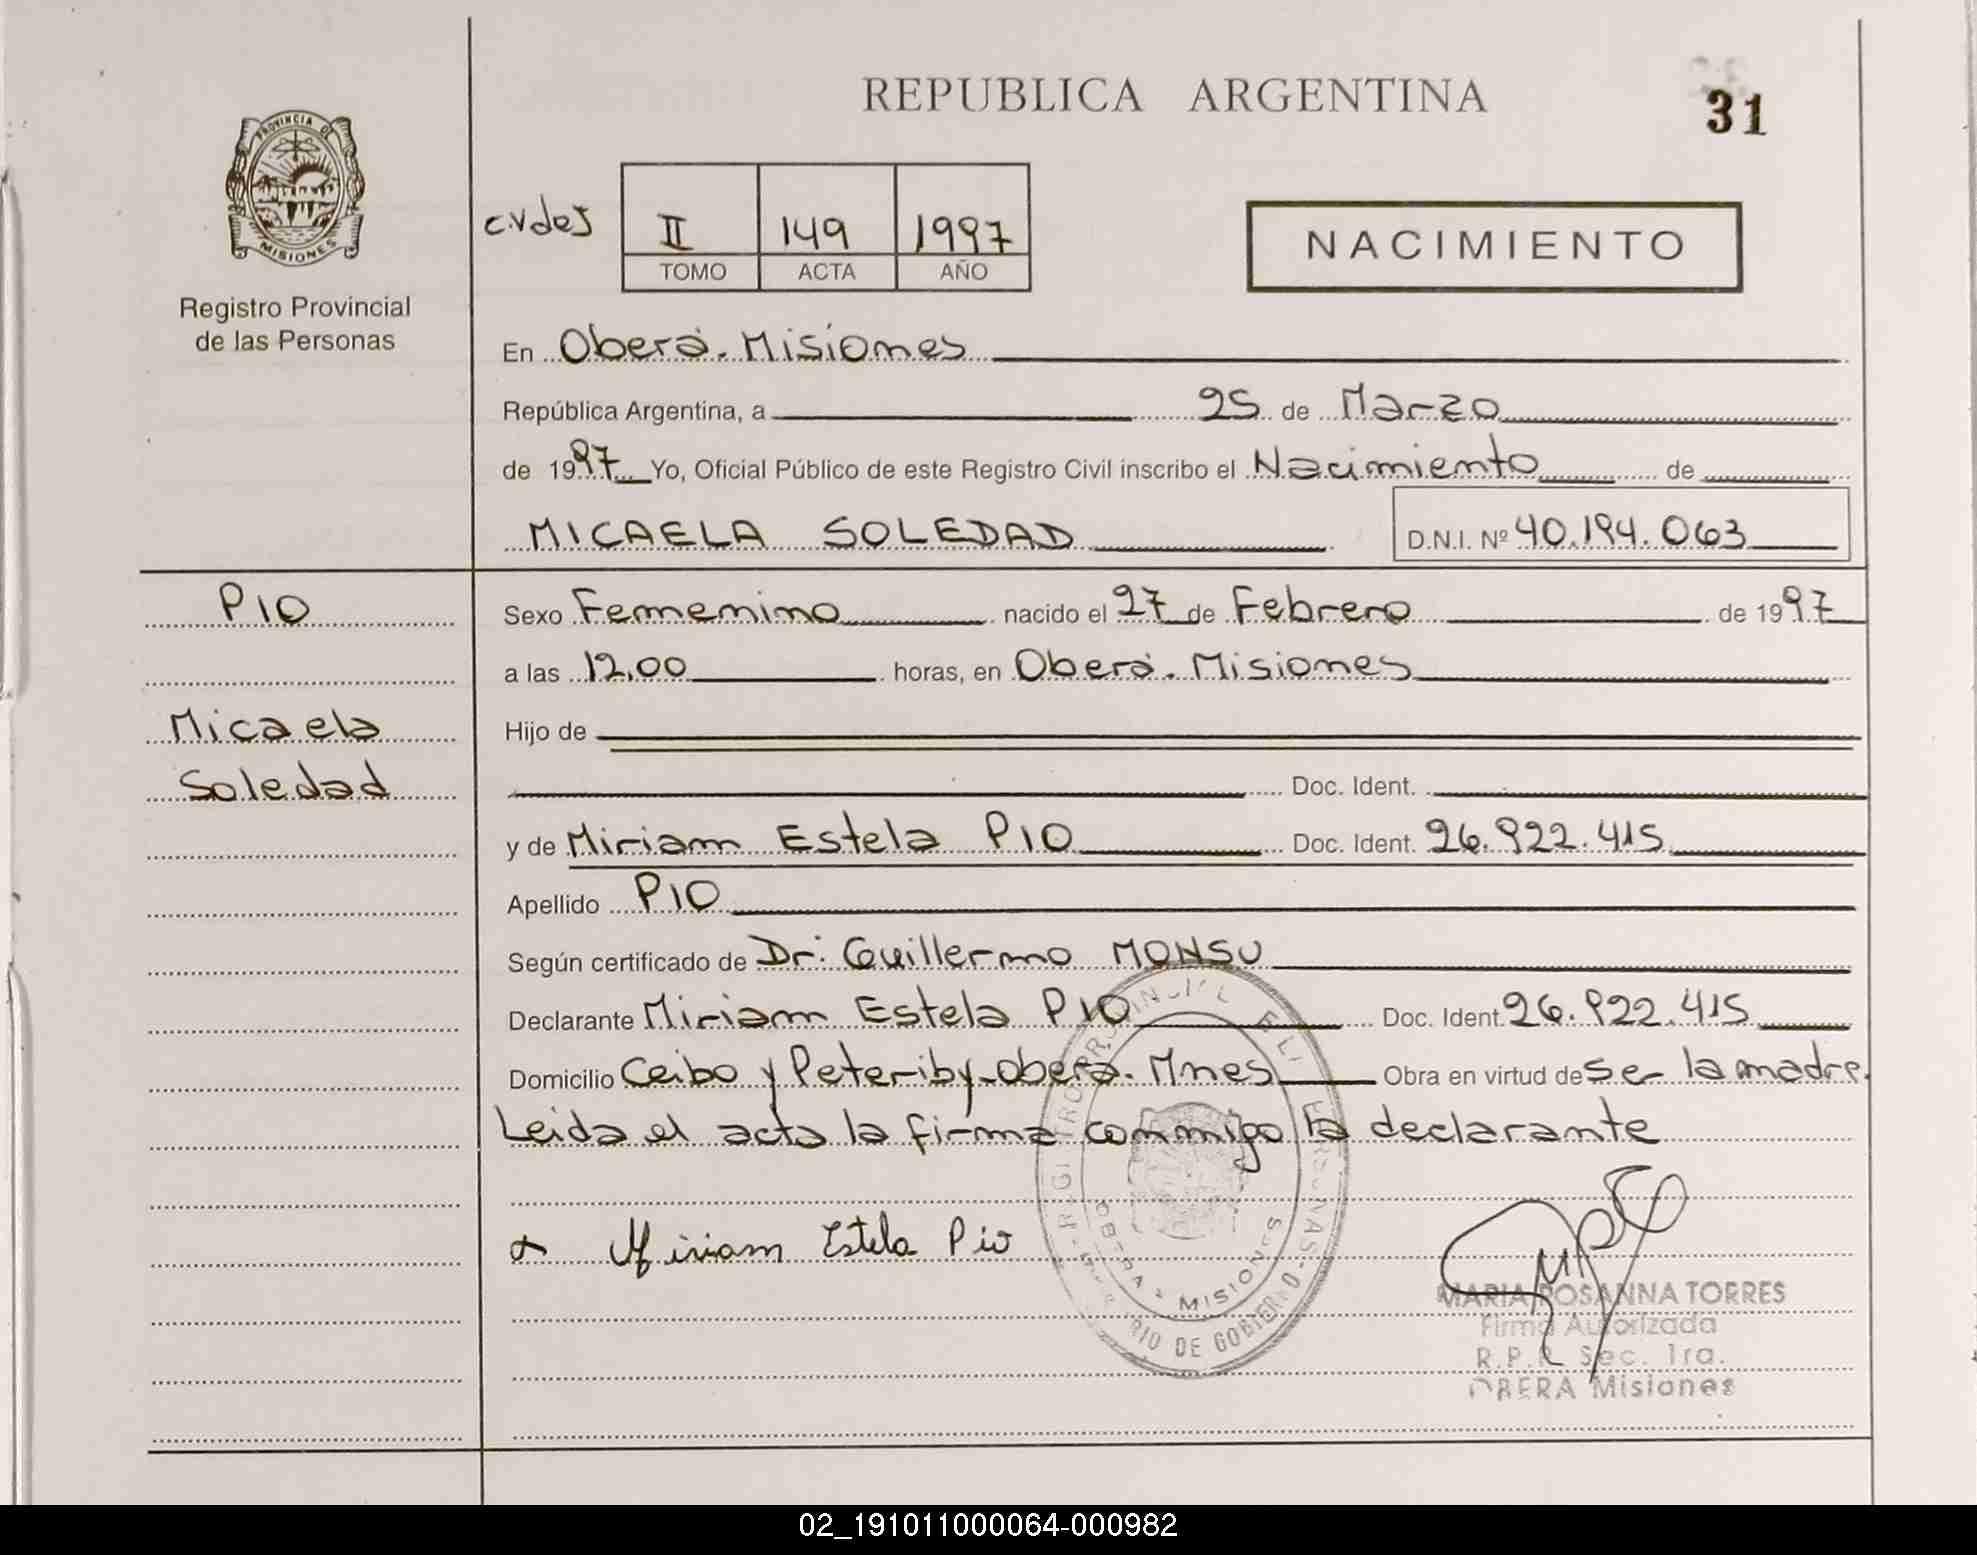 REPUBLICA ARGENTINA
31
PROVINCIA DE
MISIONES
Registro Provincial
de las Personas
II 149 1997
TOMO ACTA AÑO
NACIMIENTO
En Oberá. Misiones
República Argentina, a 25 de Marzo
de 1997 Yo, Oficial Público de este Registro Civil inscribo el Nacimiento de
MICAELA SOLEDAD D.N.I. Nº 40.194.063
PIO
Micaela
Soledad
Sexo Femenino nacido el 27 de Febrero de 1997
a las 12,00 horas, en Oberá. Misiones
Hijo de
Doc. Ident.
y de Miriam Estela PIO Doc. Ident. 26.922.415
Apellido PIO
Según certificado de Dr: Guillermo MONSU
Declarante Miriam Estela PIO Doc. Ident. 26.922.415
Domicilio Ceibo y Peteriby-Oberá. Mnes Obra en virtud de ser la madre.
Leida el acta la firma conmigo la declarante
Miriam Estela Pio
OBERA MISIONES
RIO DE GOBIERNO
MARIA ROSANNA TORRES
Firma Autorizada
R.P.P. Sec. 1ra.
OBERA Misiones
02_191011000064-000982